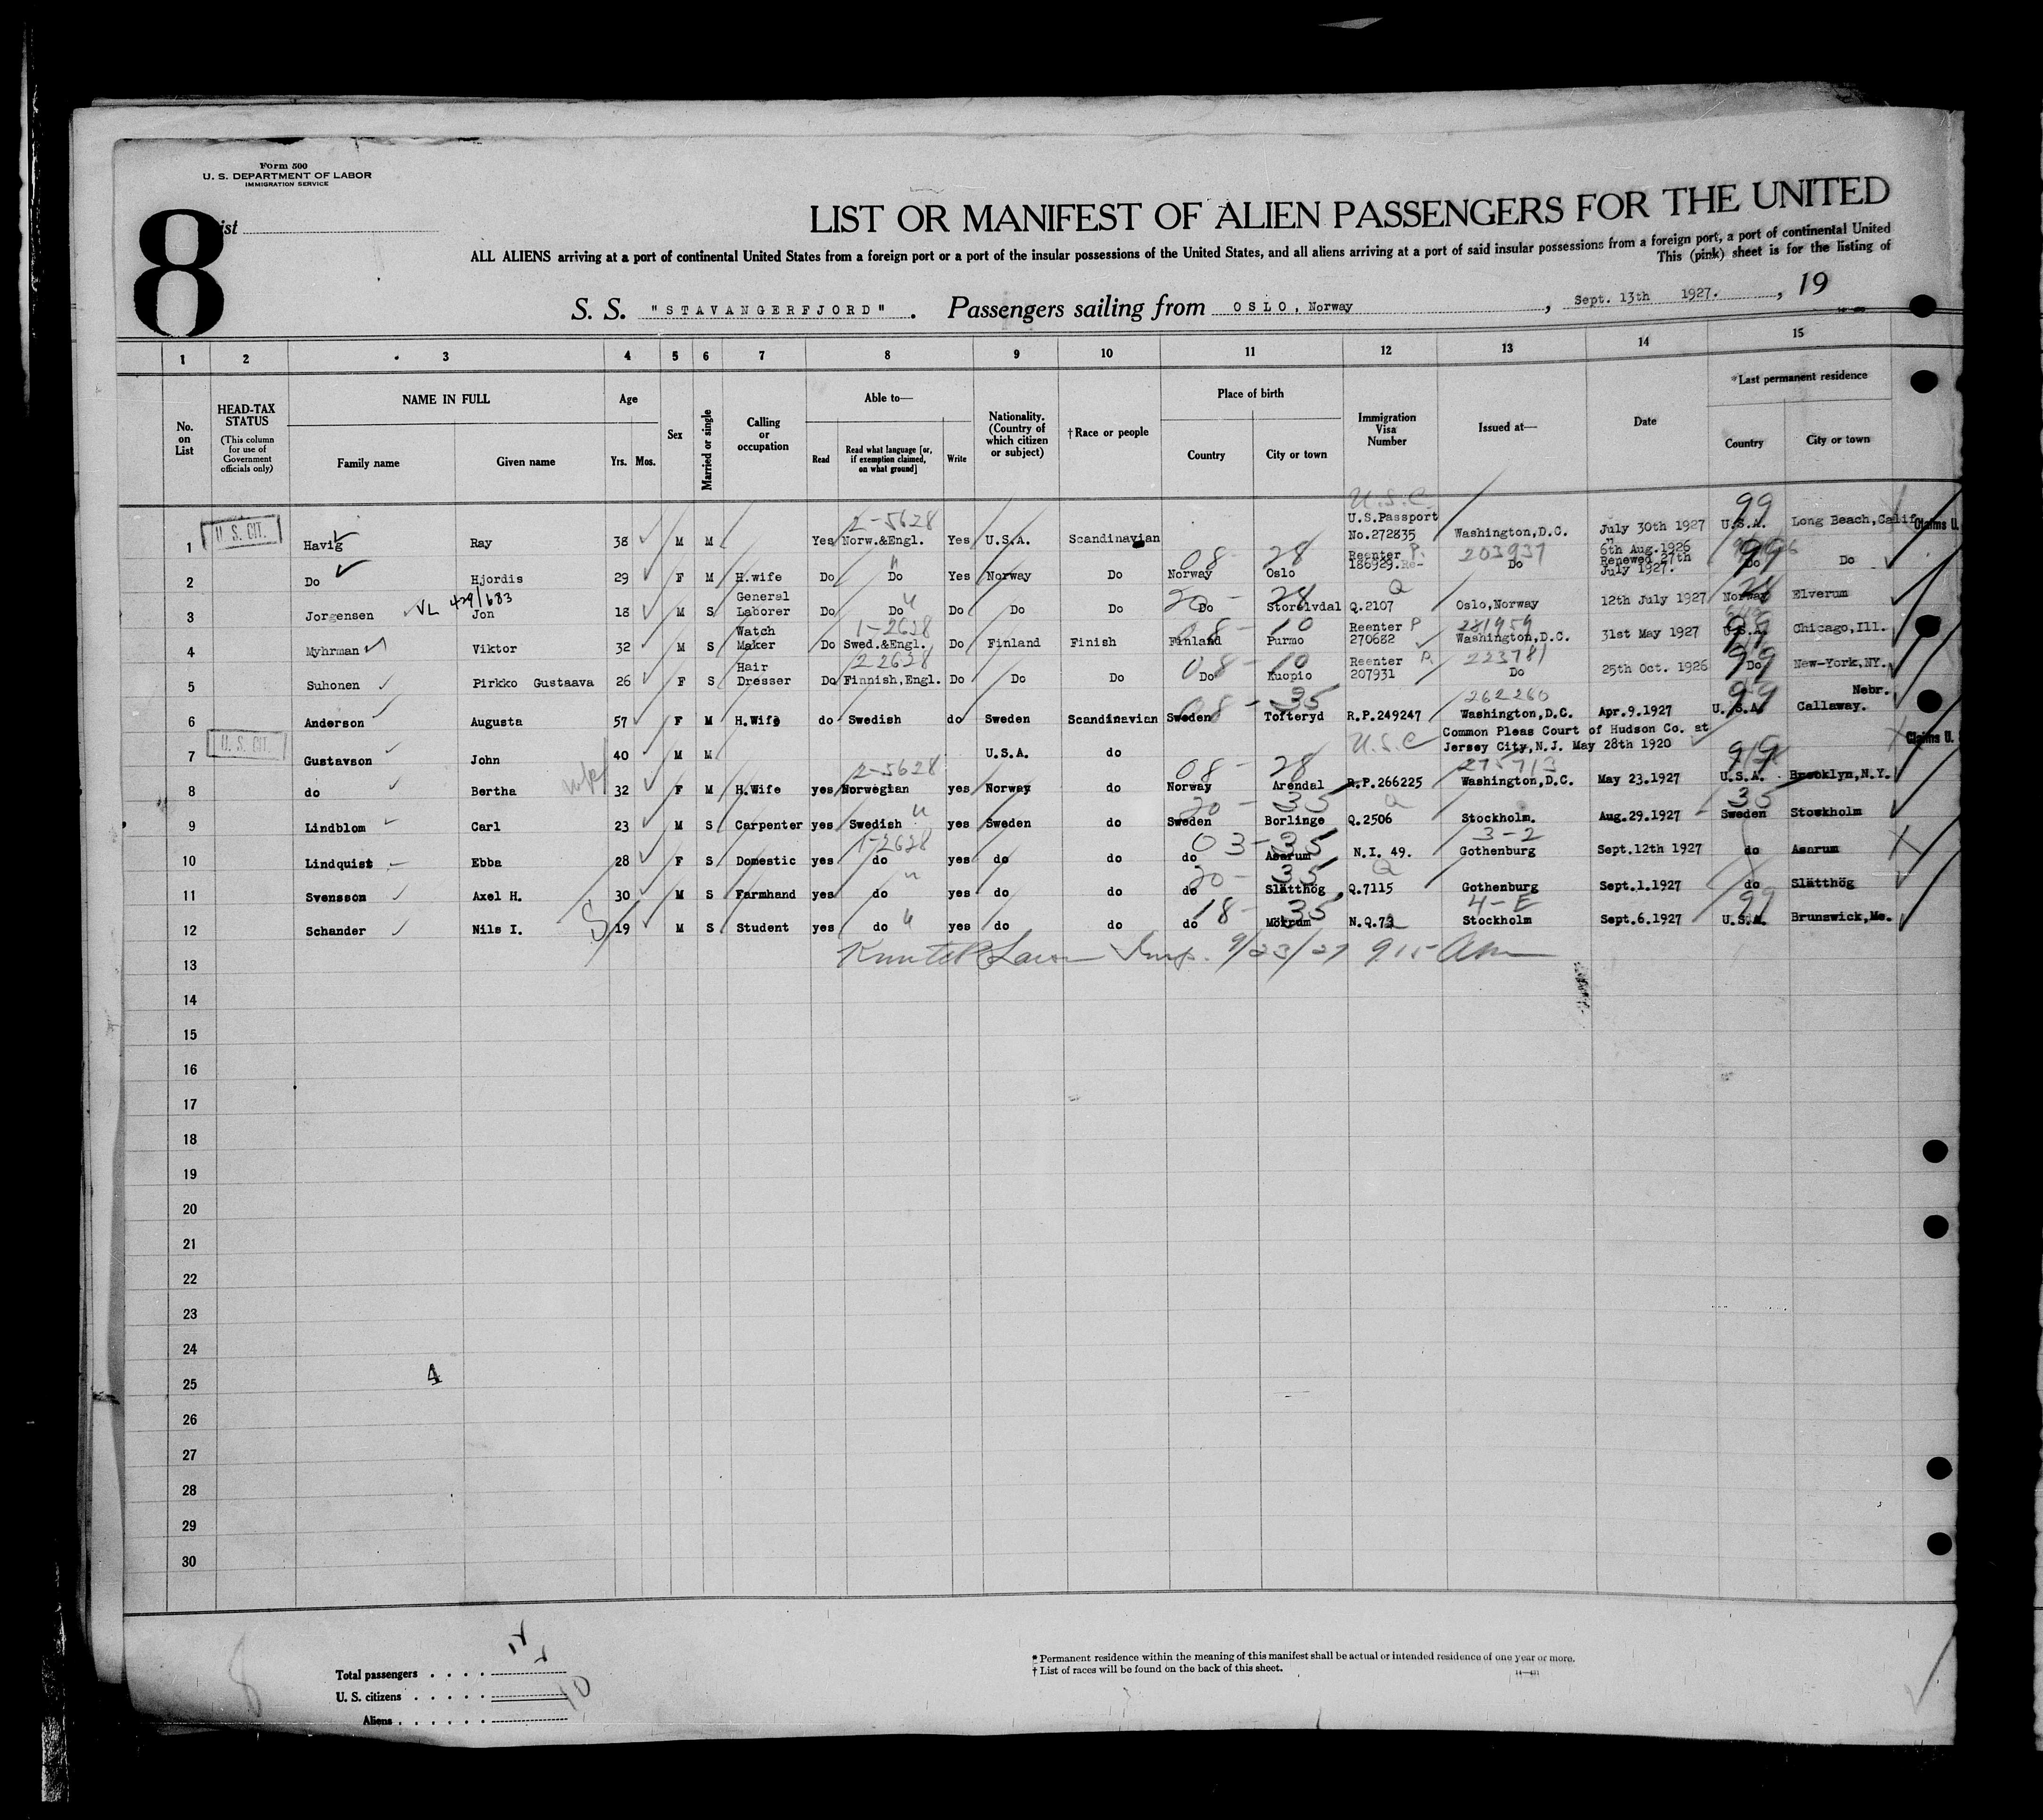 Form 500
U. S. DEPARTMENT OF LABOR
IMMIGRATION SERVICE
8
ist
LIST OR MANIFEST OF ALIEN PASSENGERS FOR THE UNITED
ALL ALIENS arriving at a port of continental United States from a foreign port or a port of the insular possessions of the United States, and all aliens arriving at a port of said insular possessions from a foreign port, a port of continental United
This (pink) sheet is for the listing of
S. S. "STAVANGERFJORD". Passengers sailing from OSLO, Norway, Sept. 13th 1927. , 19
1 2 3 4 5 6 7 8 9 10 11 12 13 14 15
No. on List
HEAD-TAX STATUS
(This column for use of Government officials only)
NAME IN FULL
Family name Given name
Age
Yrs. Mos.
Sex
Married or single
Calling or occupation
Able to—
Read Read what language [or, if exemption claimed, on what ground] Write
Nationality. (Country of which citizen or subject)
†Race or people
Place of birth
Country City or town
Immigration Visa Number
Issued at—
Date
*Last permanent residence
Country City or town
U.S.C. 99
2-5628
1 U. S. CIT. Havig Ray 38 M M Yes Norw.&Engl. Yes U.S.A. Scandinavian U.S.Passport No.272835 Washington,D.C. July 30th 1927 U.S.A. Long Beach,Calif. Claims U.
08 28 203937 99
2 Do Hjordis 29 F M H.wife Do Do Yes Norway Do Norway Oslo Reenter P. 186929.Re- Do 6th Aug.1926 Renewed 27th July 1927. Do Do
VL 429/683
3 Jorgensen Jon 18 M S General Laborer Do Do Do Do Do Do Storelvdal Q.2107 Oslo,Norway 12th July 1927 Norway Elverum
1-2628 08-10 281959
4 Myhrman Viktor 32 M S Watch Maker Do Swed.&Engl. Do Finland Finish Finland Purmo Reenter P 270682 Washington,D.C. 31st May 1927 U.S.A. Chicago,Ill.
2 2628 08-10 223781 99
5 Suhonen Pirkko Gustaava 26 F S Hair Dresser Do Finnish,Engl. Do Do Do Do Kuopio Reenter P. 207931 Do 25th Oct. 1926 Do New-York,NY.
08-35 262260 99
6 Anderson Augusta 57 F M H.Wife do Swedish do Sweden Scandinavian Sweden Tofteryd R.P.249247 Washington,D.C. Apr.9.1927 U.S.A. Callaway. Nebr.
7 U. S. CIT. Gustavson John 40 M M U.S.A. do U.S.C Common Pleas Court of Hudson Co. at Jersey City,N.J. May 28th 1920 Claims U.
2-5628 08-28 99
8 do Bertha 32 F M H.Wife yes Norwegian yes Norway do Norway Arendal R.P.266225 Washington,D.C. May 23.1927 U.S.A. Brooklyn,N.Y.
20-35 Q 35
9 Lindblom Carl 23 M S Carpenter yes Swedish yes Sweden do Sweden Borlinge Q.2506 Stockholm. Aug.29.1927 Sweden Stockholm
1-2628 03-35 3-2
10 Lindquist Ebba 28 F S Domestic yes do yes do do do Asarum N.I. 49. Gothenburg Sept.12th 1927 do Asarum
20-35 Q
11 Svensson Axel H. 30 M S Farmhand yes do yes do do do Slätthög Q.7115 Gothenburg Sept.1.1927 do Slätthög
S 18-35 4-E 99
12 Schander Nils I. 19 M S Student yes do yes do do do Mörrum N.Q.72 Stockholm Sept.6.1927 U.S.A. Brunswick,Me.
13 Insp. 9/23/27 9.15 Am
14
15
16
17
18
19
20
21
22
23
24
25 4
26
27
28
29
30
8
Total passengers
U. S. citizens
10
Aliens
* Permanent residence within the meaning of this manifest shall be actual or intended residence of one year or more.
† List of races will be found on the back of this sheet.